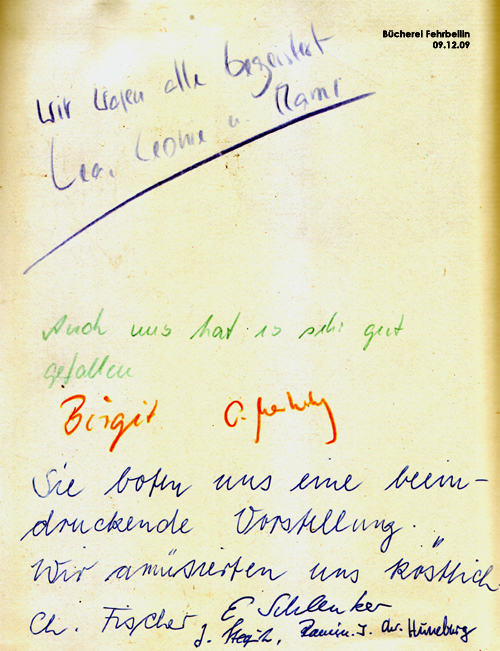 Bücherei Fehrbellin
09.12.09
Wir waren alle begeistert
Lea, Leonie u. Mami
Auch uns hat es sehr gut
gefallen
Birgit
Sie boten uns eine beein-
druckende Vorstellung.
Wir amüsierten uns köstlich
Ch. Fischer, E. Schlenker